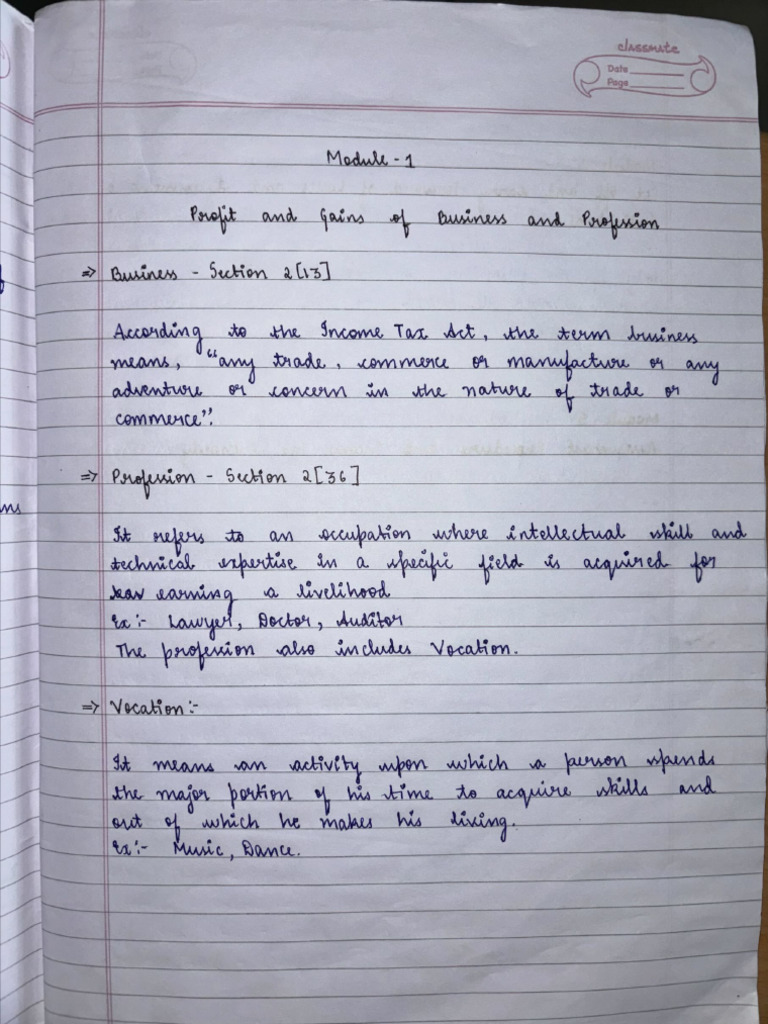 classmate
Date
Page
Module - 1
Profit and Gains of Business and Profession
⇒ Business - Section 2[13]
According to the Income Tax Act, the term business
means, "any trade, commerce or manufacture or any
adventure or concern in the nature of trade or
commerce".
⇒ Profession - Section 2[36]
It refers to an occupation where intellectual skill and
technical expertise in a specific field is acquired for
earning a livelihood
Ex:- Lawyer, Doctor, Auditor
The profession also includes Vocation.
⇒ Vocation:-
It means an activity upon which a person spends
the major portion of his time to acquire skills and
out of which he makes his living.
Ex:- Music, Dance.